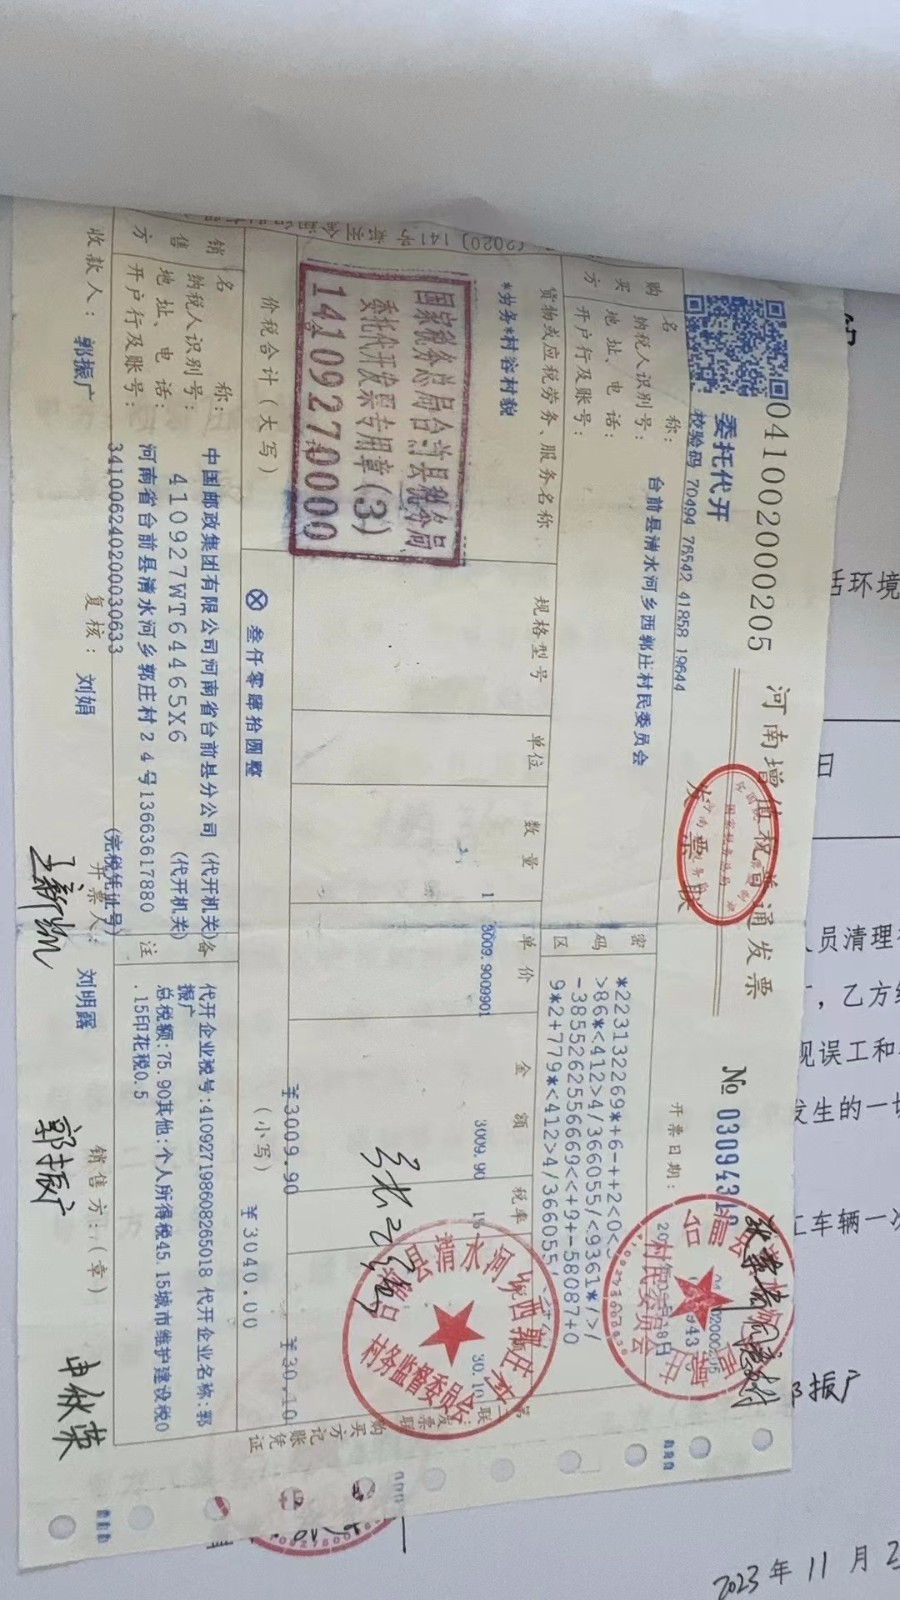 041002000205
河南增值税普通发票
№ 03094312
委托代开
校验码 70494 76542 41858 19644
发票联
开票日期:
购买方
名称: 台前县清水河乡西郭庄村民委员会
纳税人识别号:
地址、电话:
开户行及账号:
密码区
*223132269*+6-++2<0<
>86*<412>4/366055/<9361*/>/
-38552625556669<<+9+-58087+0
9*2+779*<412>4/366055
货物或应税劳务、服务名称
规格型号
单位
数量
单价
金额
税率
*劳务*村容村貌
1
3009.9009901
3009.90
1%
30.10
国家税务总局台前县税务局
委托代开发票专用章(3)
14109270000
¥3009.90
¥30.10
价税合计(大写)
ⓧ 叁仟零肆拾圆整
(小写)
¥3040.00
销售方
名称: 中国邮政集团有限公司河南省台前县分公司 (代开机关)
纳税人识别号: 410927WT64465X6 (代开机关)
地址、电话: 河南省台前县清水河乡郭庄村24号13663617880
开户行及账号: 341006240200030633 (完税凭证号)
备注
代开企业税号:410927198608265018 代开企业名称:郭
振广
总税额:75.90其他:个人所得税45.15城市维护建设税0
.15印花税0.5
收款人: 郭振广
复核: 刘娟
开票人: 刘明露
销售方:(章)
郭振广
村务监督委员会
村民委员会
购买方记账凭证
活环境
日
人员清理
,乙方
现误工和
发生的一切
工车辆一次
振广
2023年11月2